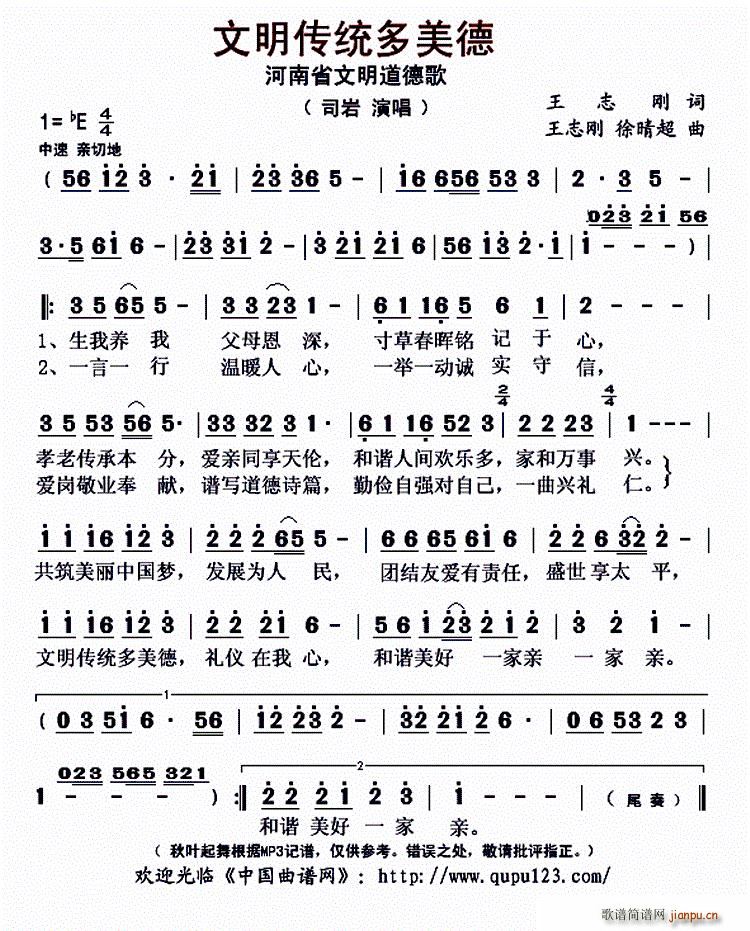 文明传统多美德
河南省文明道德歌
（ 司岩 演唱 ）
1= ♭E 4/4
王 志 刚 词
中速 亲切地
王志刚 徐晴超 曲
( 56 1̇2̇ 3̇ · 2̇1̇ | 2̇3̇ 3̇6 5 - | 1̇6 656 53 3 | 2 · 3 5 - |
023 21 56
3·5 61̇ 6 - | 2̇3̇ 3̇1̇ 2̇ - | 3 2̇1̇ 2̇1̇ 6 | 56 1̇3̇ 2̇·1̇ | 1̇ - - - ) |
‖: 3 5 65 5 - | 3 3 23 1 - | 6 1 16 5 6 1 | 2 - - - |
1、生我养 我 父母恩 深， 寸草春晖铭 记 于 心，
2、一言一 行 温暖人 心， 一举一动诚 实 守 信，
2/4 4/4
3 5 53 56 5· | 33 32 3 1· | 6 1 16 52 3 | 2 2 23 | 1 - - - |
孝老传承本 分，爱亲同享天伦，和谐人间欢乐多，家和万事 兴。
爱岗敬业奉 献，谱写道德诗篇，勤俭自强对自己，一曲兴礼 仁。
1̇ 1̇ 1̇6 1̇2̇ 3̇ | 2̇ 2̇ 2̇ 65 5 - | 6 6 65 61̇ 6 | 2̇ 2̇ 6 3̇2̇ 2̇ - |
共筑美丽中国梦， 发展为人 民， 团结友爱有责任，盛世享太 平，
1̇ 1̇ 1̇6 1̇2̇ 3̇ | 2̇ 2̇ 2̇1̇ 6 - | 5 6 1̇ 2̇3̇ 2̇1̇ 2̇ | 3̇ 2̇ 1̇ - |
文明传统多美德，礼仪 在我 心， 和谐美好 一家亲 一 家 亲。
1
( 0 3 51̇ 6 · 56 | 1̇2̇ 2̇3̇ 2̇ - | 3̇2̇ 2̇1̇ 2̇ 6 | 0 6 53 2 3 |
023 565 321
2
1 - - - ) :‖ 2̇ 2̇ 2̇1̇ 2̇ 3̇ | 1̇ - - - | （ 尾奏 ） ‖
和谐 美好 一 家 亲。
（ 秋叶起舞根据MP3记谱，仅供参考。错误之处，敬请批评指正。）
欢迎光临《中国曲谱网》：http://www.qupu123.com/
歌谱简谱网
jianpu.cn